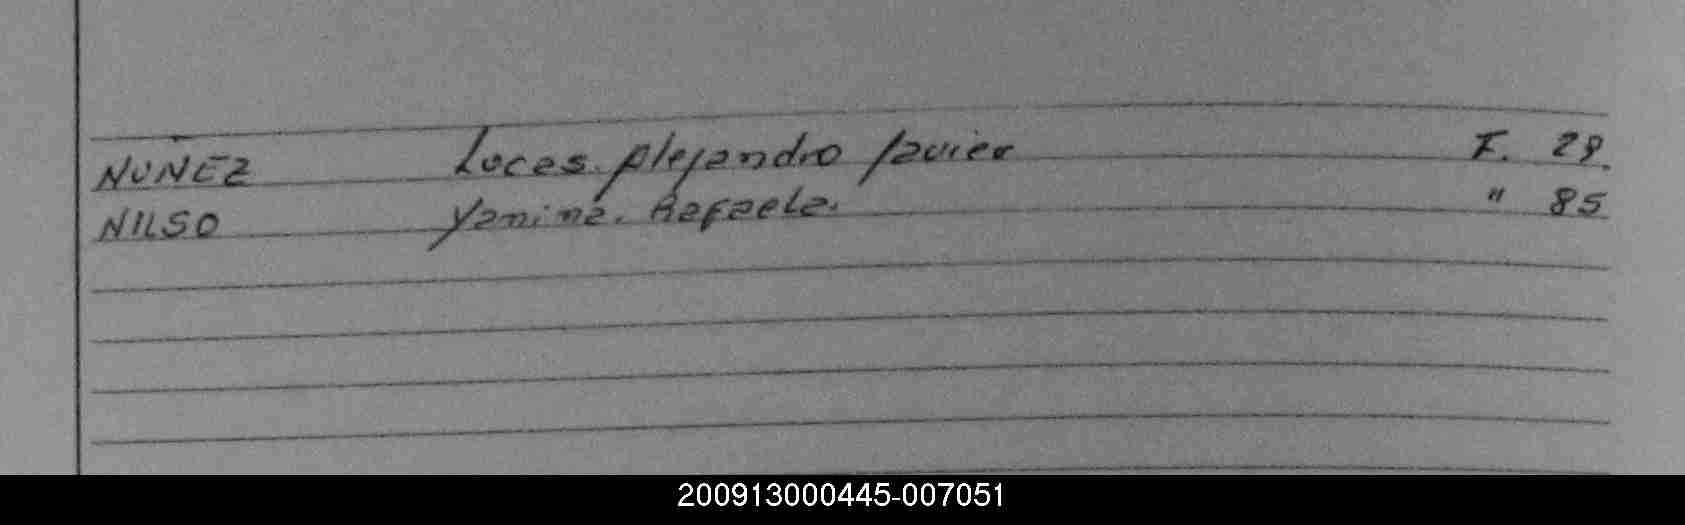 NUÑEZ Lucas. Alejandro Javier F. 29.
NILSO Yamina. Rafaela. " 85
200913000445-007051